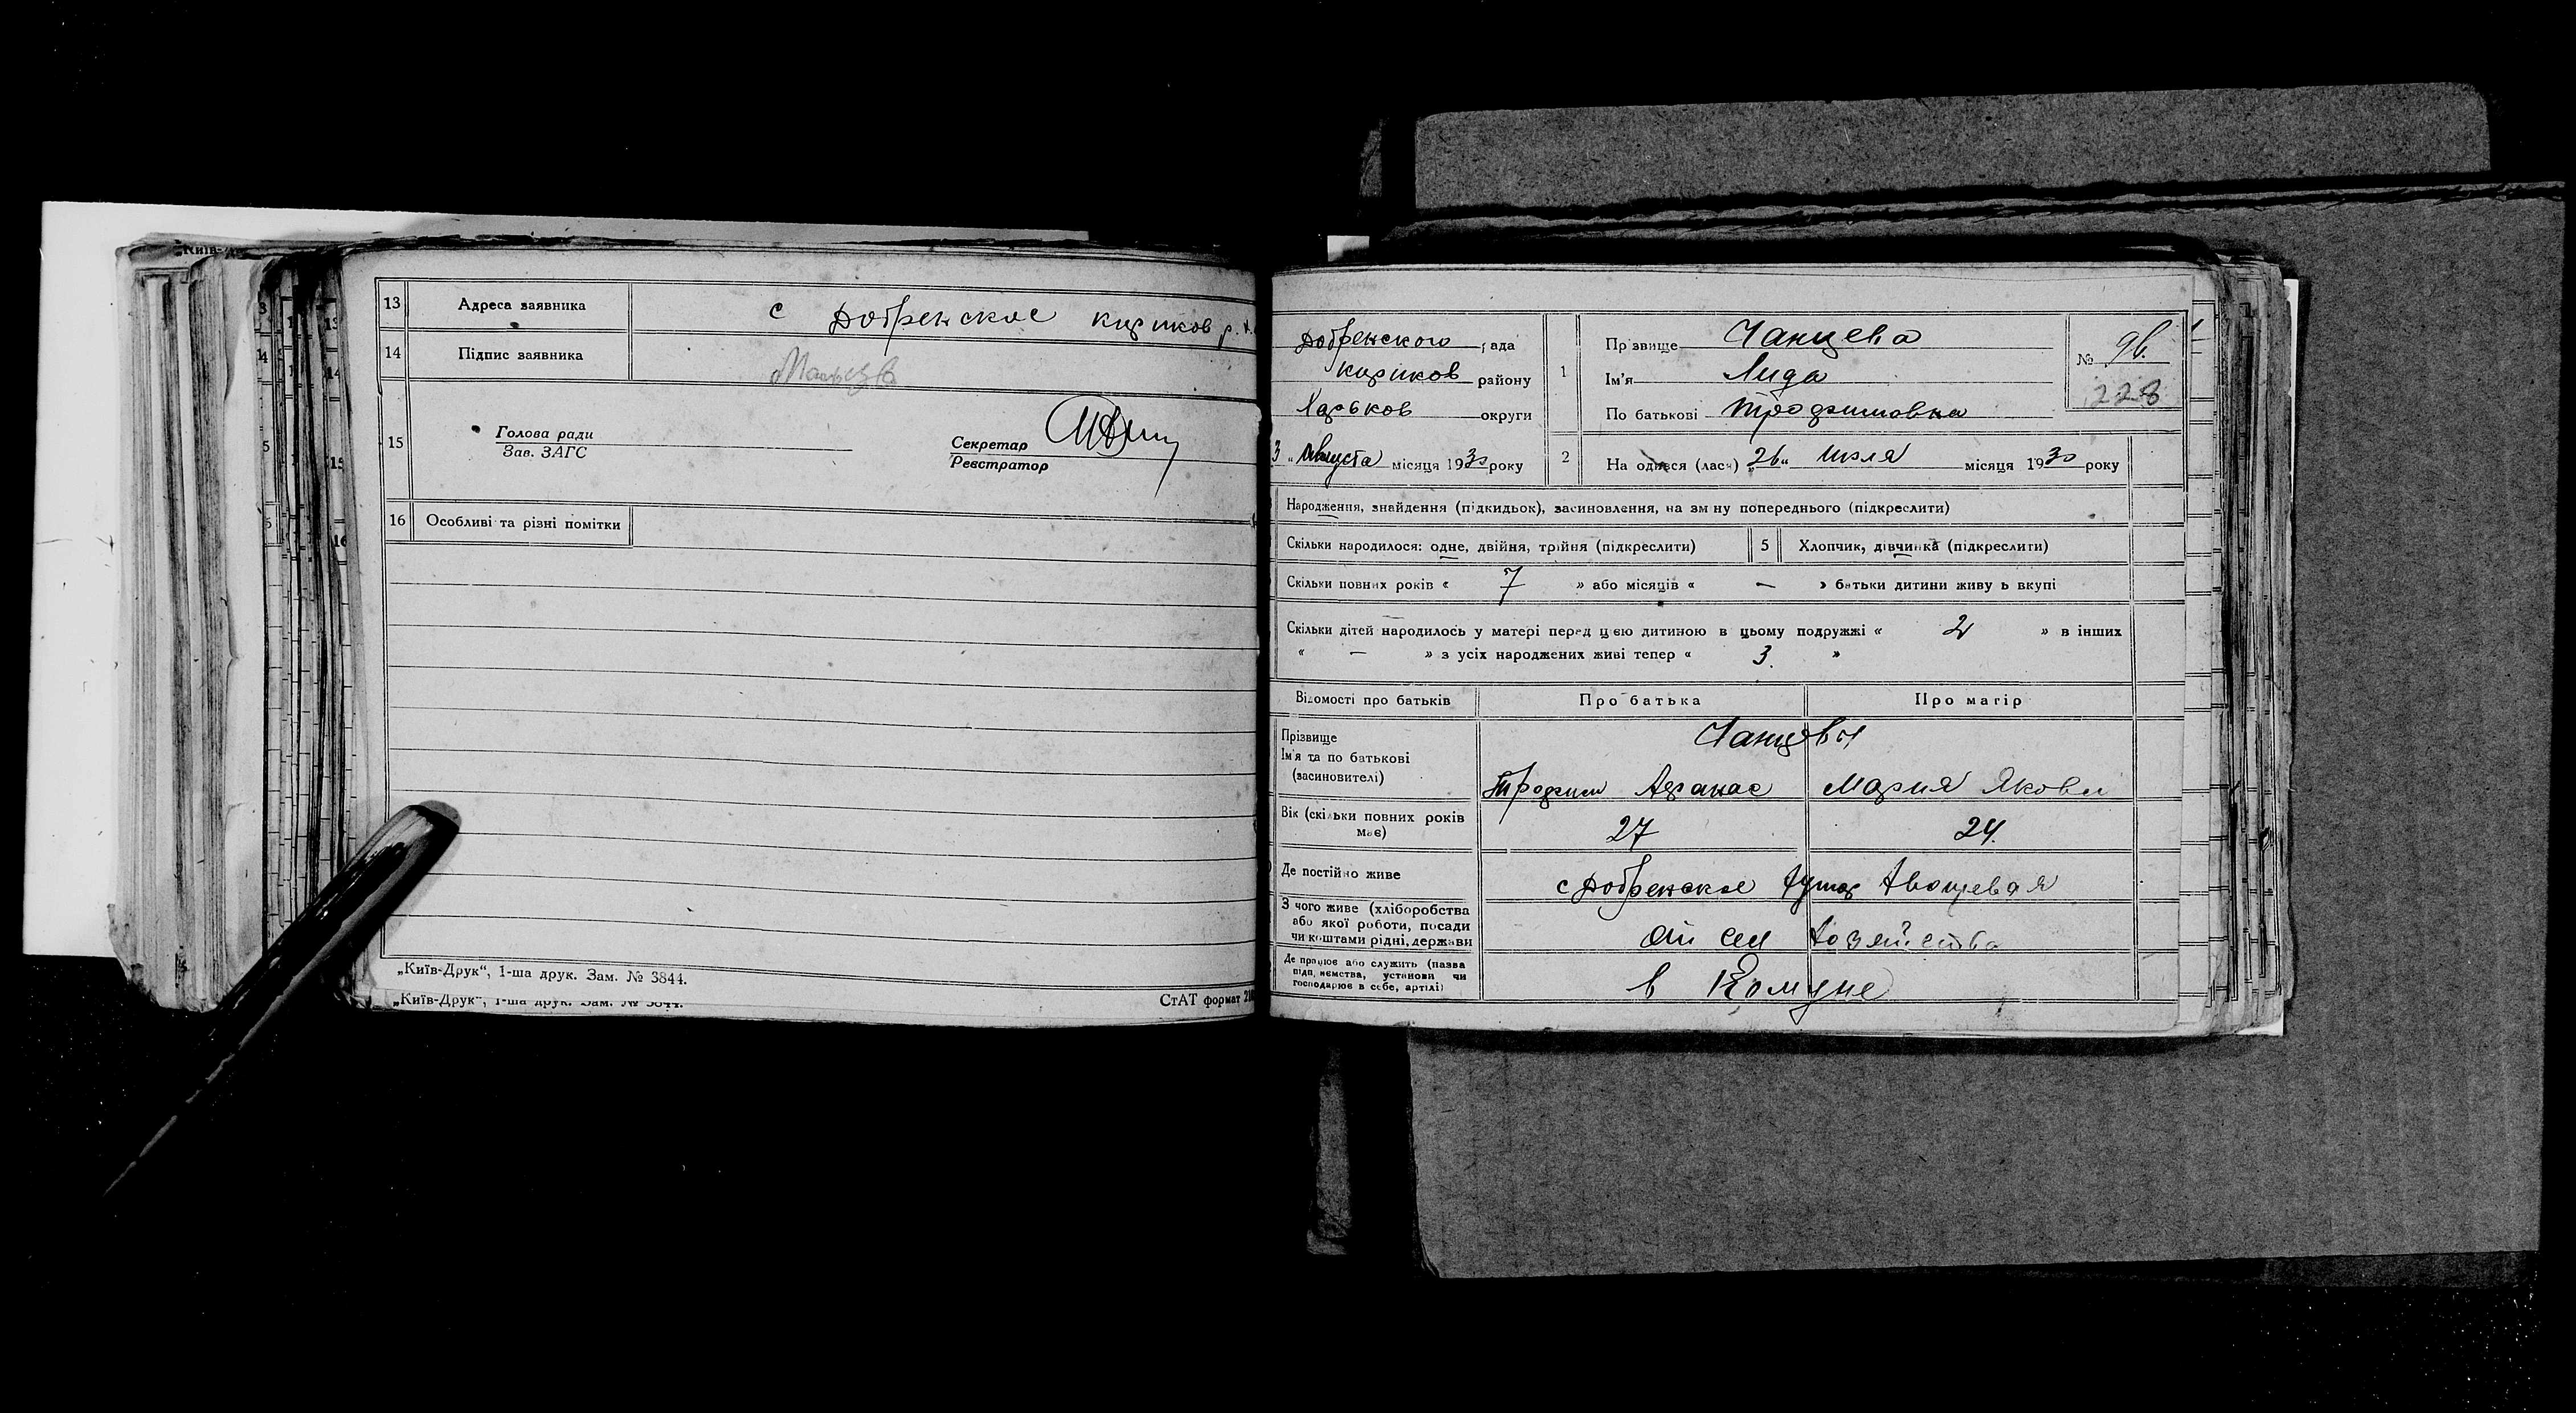 13 Адреса заявника с Добренское Кириков р.
14 Підпис заявника
15 Голова ради
Зав. ЗАГС
Секретар
Реєстратор
16 Особливі та різні помітки
„Київ-Друк“, 1-ша друк. Зам. № 3844.
„Київ-Друк“, 1-ша друк. Зам. № 3844.
СтАТ формат
Добренского рада
Кириков району
Харьков округи
3 „ Августа місяця 1930 року
1 Прізвище Чанцева
Ім'я Лида
По батькові Трофимовна
№ 96.
228
2 Народився (лася) „26“ Июля місяця 1930 року
Народження, знайдення (підкидьок), засиновлення, на зміну попереднього (підкреслити)
Скільки народилося: одне, двійня, трійня (підкреслити) 5 Хлопчик, дівчинка (підкреслити)
Скільки повних років « 7 » або місяців « — » батьки дитини живуть вкупі
Скільки дітей народилось у матері перед цією дитиною в цьому подружжі « 2 » в інших
« — » з усіх народжених живі тепер « 3. »
Відомості про батьків Про батька Про матір
Прізвище Чанцевы
Ім'я та по батькові
(засиновителі) Трофим Афанас Мария Яковл
Вік (скільки повних років
має) 27 24.
Де постійно живе с Добренское хутор
З чого живе (хліборобства
або якої роботи, посади
чи коштами рідні, держави от сел хозяйства
Де працює або служить (назва
підприємства, установи чи
господарює в себе, артілі) в Комуне